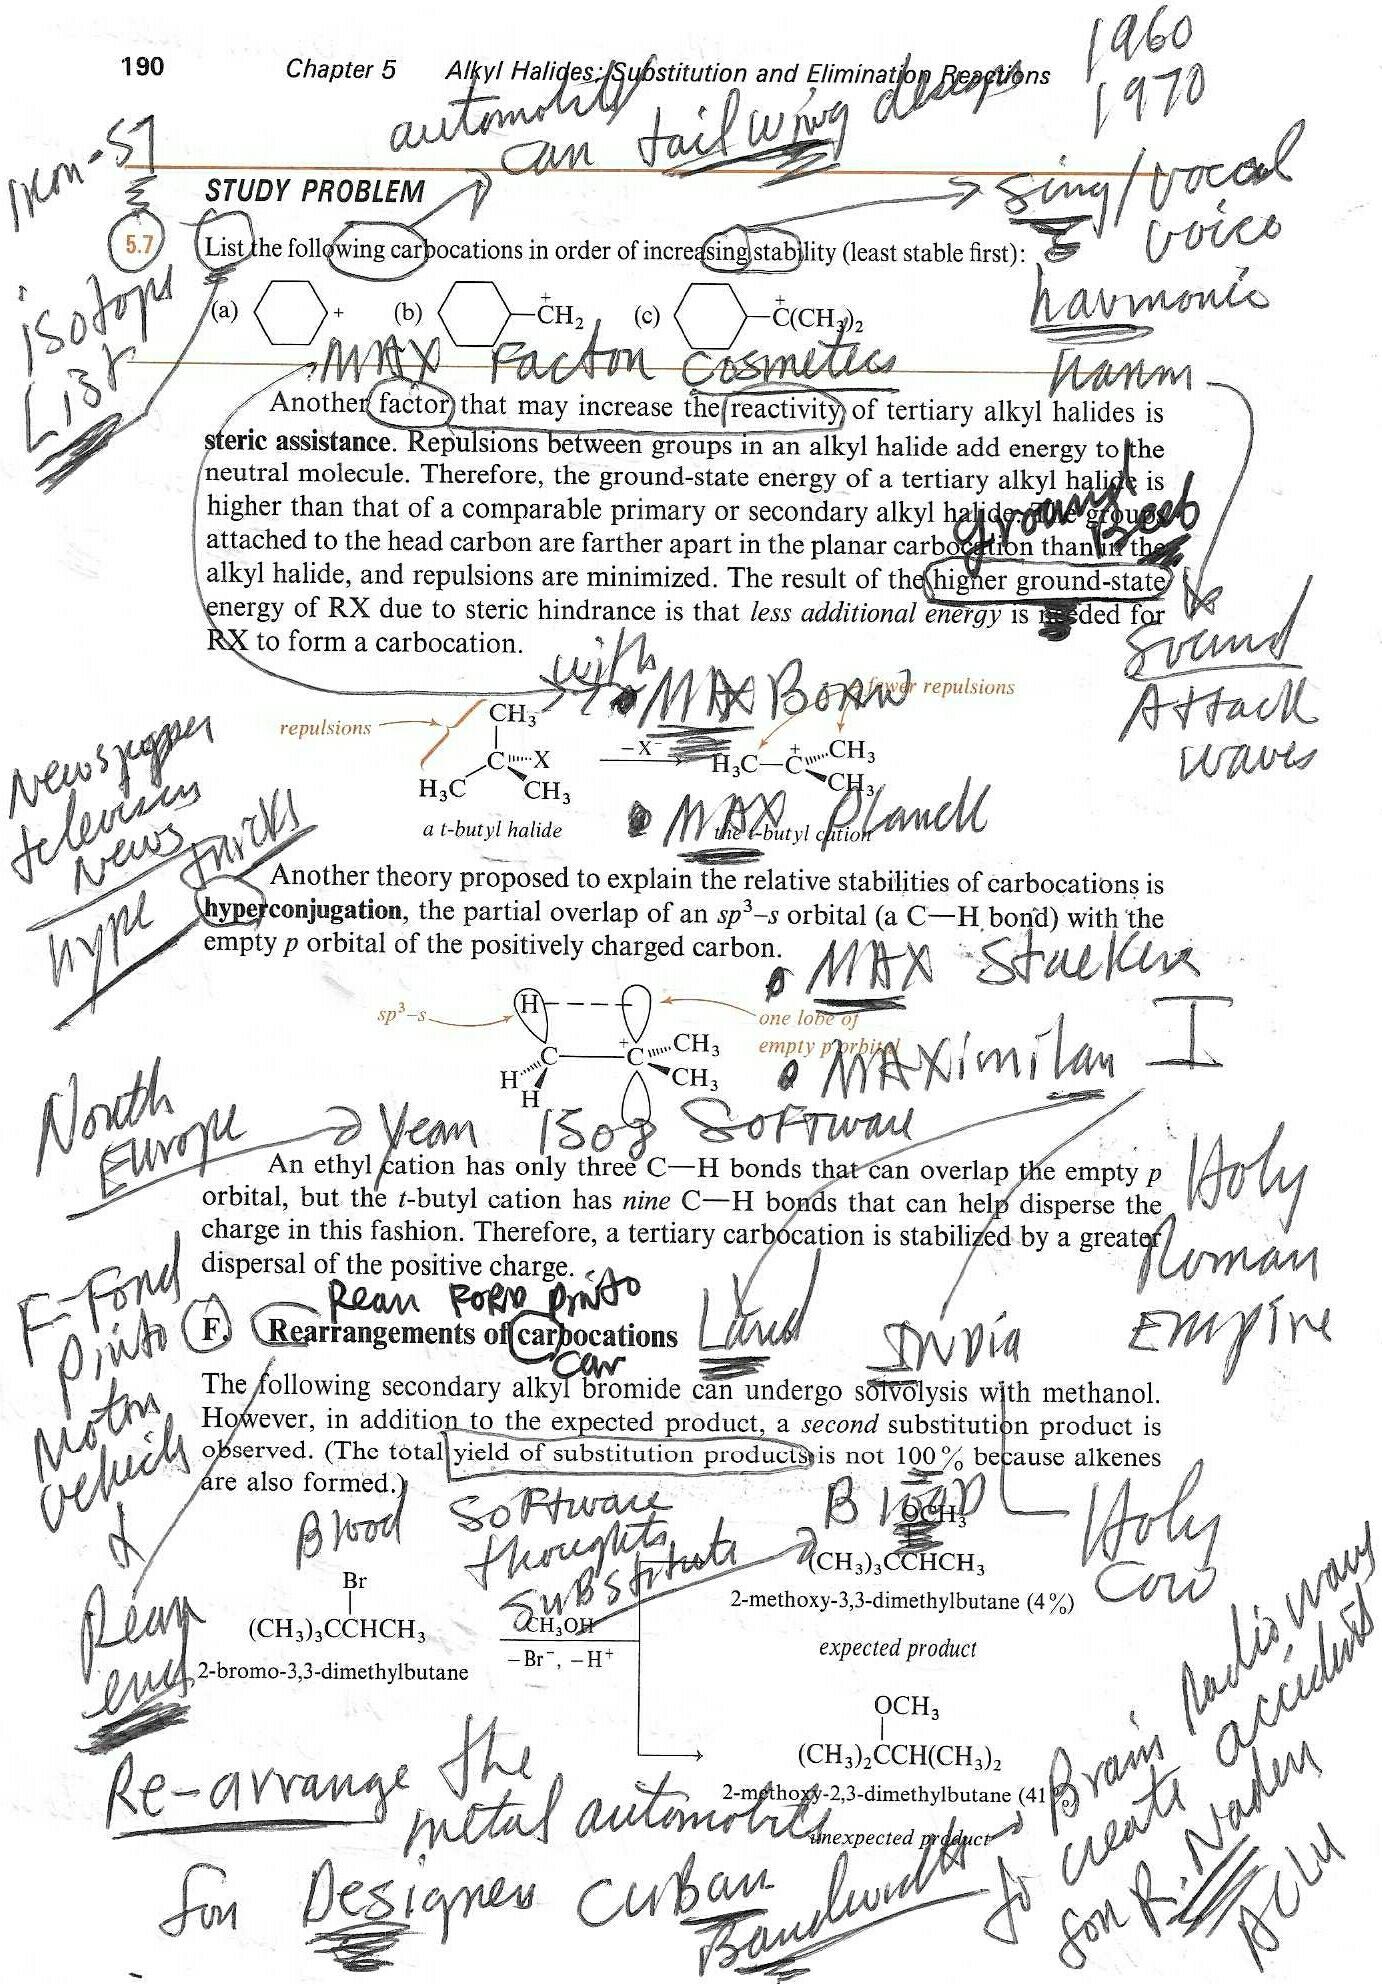 190 Chapter 5 Alkyl Halides: Substitution and Elimination Reactions
1960
1970
automobile
can tail wing designs
Iron-57
STUDY PROBLEM
sing/vocal
voice
harmonic
harm
5.7 List the following carbocations in order of increasing stability (least stable first):
isotops
List
(a) + (b) CH₂ + (c) C(CH₃)₂ +
MAX Factor Cosmetics
Another factor that may increase the reactivity of tertiary alkyl halides is
steric assistance. Repulsions between groups in an alkyl halide add energy to the
neutral molecule. Therefore, the ground-state energy of a tertiary alkyl halide is
higher than that of a comparable primary or secondary alkyl halide. The groups
ground
attached to the head carbon are farther apart in the planar carbocation than in the
alkyl halide, and repulsions are minimized. The result of the higher ground-state
energy of RX due to steric hindrance is that less additional energy is needed for
RX to form a carbocation.
Sound
Attack
waves
with
MAX Born
fewer repulsions
repulsions
CH₃
C X
H₃C CH₃
−X⁻
H₃C—C⁺ CH₃
CH₃
MAX Planck
a t-butyl halide
the t-butyl cation
Newspaper
television
News
hype tricks
Another theory proposed to explain the relative stabilities of carbocations is
hyperconjugation, the partial overlap of an sp³–s orbital (a C—H bond) with the
empty p orbital of the positively charged carbon.
MAX
sp³–s
H
one lobe of
empty p orbital
C C⁺ CH₃
CH₃
H
H
MAXimilan I
North
Europe
Year 1508 Software
An ethyl cation has only three C—H bonds that can overlap the empty p
orbital, but the t-butyl cation has nine C—H bonds that can help disperse the
charge in this fashion. Therefore, a tertiary carbocation is stabilized by a greater
dispersal of the positive charge.
Holy
Roman
Empire
F-Ford
Pinto
Motor
vehicle
&
Rear
end
Rear FORD pinto
F. Rearrangements of carbocations
car
Land
India
The following secondary alkyl bromide can undergo solvolysis with methanol.
However, in addition to the expected product, a second substitution product is
observed. (The total yield of substitution products is not 100% because alkenes
are also formed.)
Blood
Software
thoughts
Substitute
Blood
Holy
Cow
Br
(CH₃)₃CCHCH₃
2-bromo-3,3-dimethylbutane
CH₃OH
−Br⁻, −H⁺
OCH₃
(CH₃)₃CCHCH₃
2-methoxy-3,3-dimethylbutane (4%)
expected product
OCH₃
(CH₃)₂CCH(CH₃)₂
2-methoxy-2,3-dimethylbutane (41%)
unexpected product
Re-arrange the
metal automobiles
for Designer CuBan
Bandwidth
Brain Radio waves
to create accidents
for R. Nader
ACLU